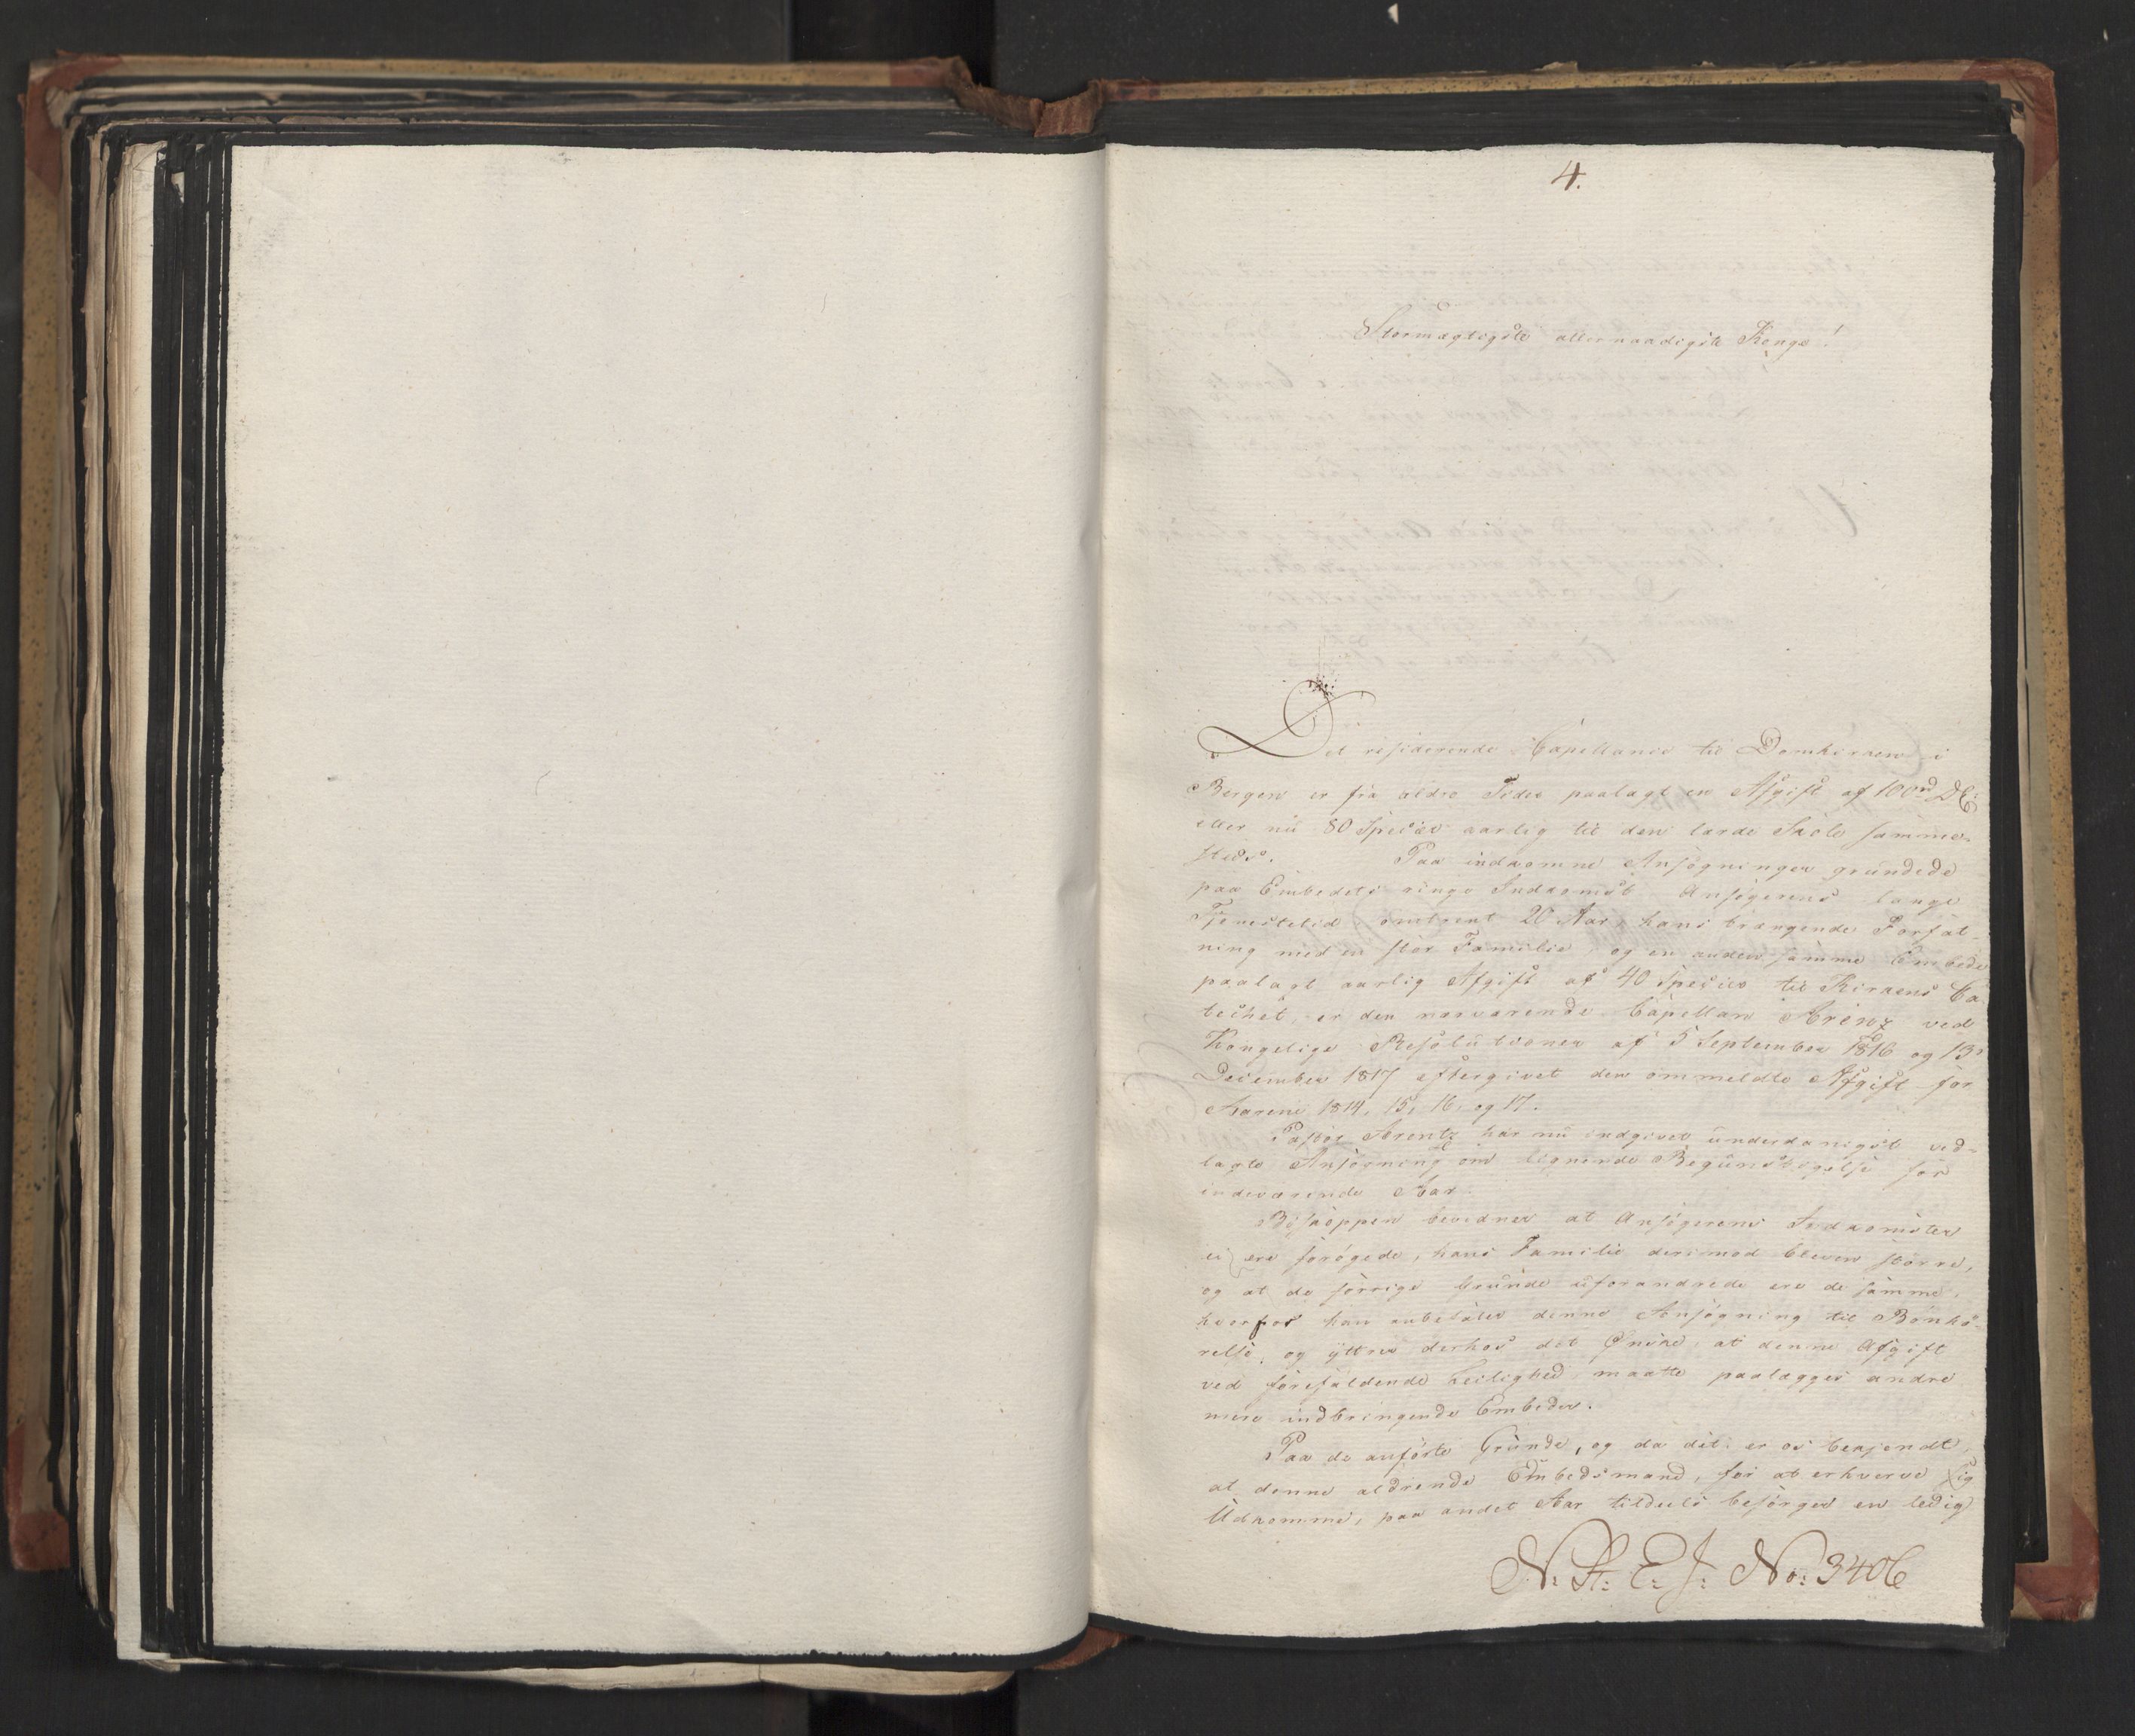 4.
Stormægtigste allernaadigste Konge!
Det residerende Capellanie til Domkirken i
Bergen er fra ældre Tider paalagt en Afgift af 100 rd DC:
eller nu 80 Species aarlig til den lærde Skole samme-
steds. Paa indkomne Ansøgninger grundede
paa Embedets ringe Indkomst Ansøgerens lange
Tjenestetid, omtrent 20 Aar, hans trængende Forfat-
ning med en stor Familie, og en anden samme Embede
paalagt aarlig Afgift af 40 Species til Kirkens Ca-
techet, er den nærværende Capellan Arenz ved
Kongelige Resolutioner af 5 September 1816 og 13de
December 1817 eftergivet den ommeldte Afgift for
Aarene 1814, 15, 16, og 17.
Pastor Arentz har nu indgivet underdanigst ved-
lagte Ansøgning om lignende Begunstigelse for
indeværende Aar.
Biskoppen bevidner at Ansøgerens Indkomster
ei ere forøgede, hans Familie derimod bleven større,
og at de førrige Grunde uforandrede ere de samme,
hvorfor han anbefaler denne Ansøgning til Bønhø-
relse, og yttrer derhos det Ønske, at denne Afgift
ved forefaldende Leilighed maatte paalægges andre
mere indbringende Embeder.
Paa de anførte Grunde, og da det er os bekjendt,
at denne aldrende Embedsmand, for at erhverve sig
Udkomme, paa andet Aar tildeels besørger en ledig
N: St: E: J: No: 3406